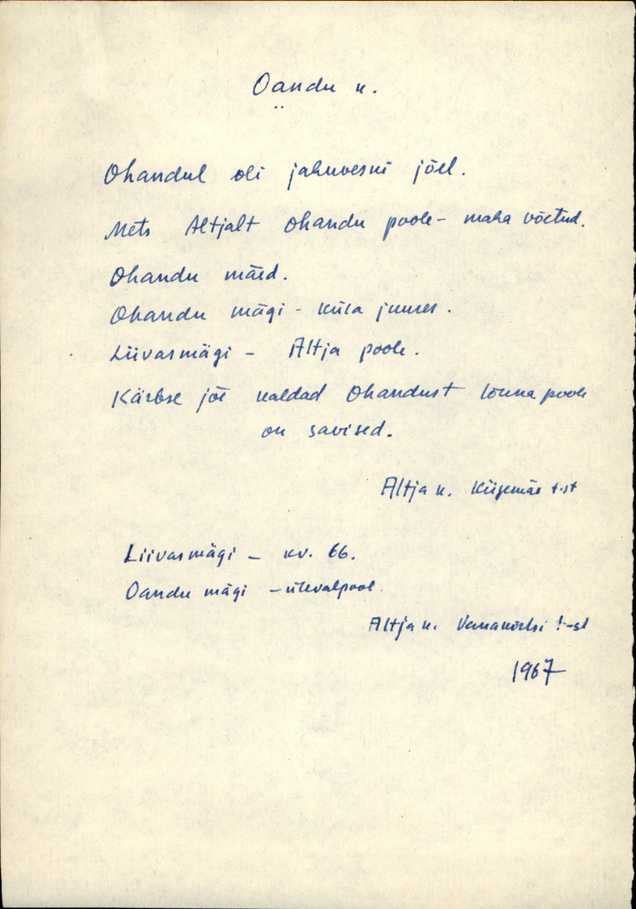 Oandu k.
Ohandul oli jahuveski jõel.
Mets Altjalt Ohandu poole - maha võetud.
Ohandu mäed.
Ohandu mägi - küla juures.
Liivasmägi - Altja poole.
Kärbse jõe kaldad Ohandust lõuna poole
on savised.
Altja k. Kiigemäe t-st
Liivasmägi - kv. 66.
Oandu mägi - ülevalpool.
Altja k. t-st
1967